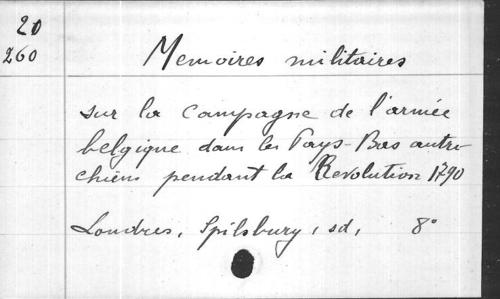 20
260
Memoires militaires
sur la Campagne de l'armée
belgique dans les Pays-Bas autri-
chiens pendant la Revolution 1790
Londres, Spilsbury, sd, 8°